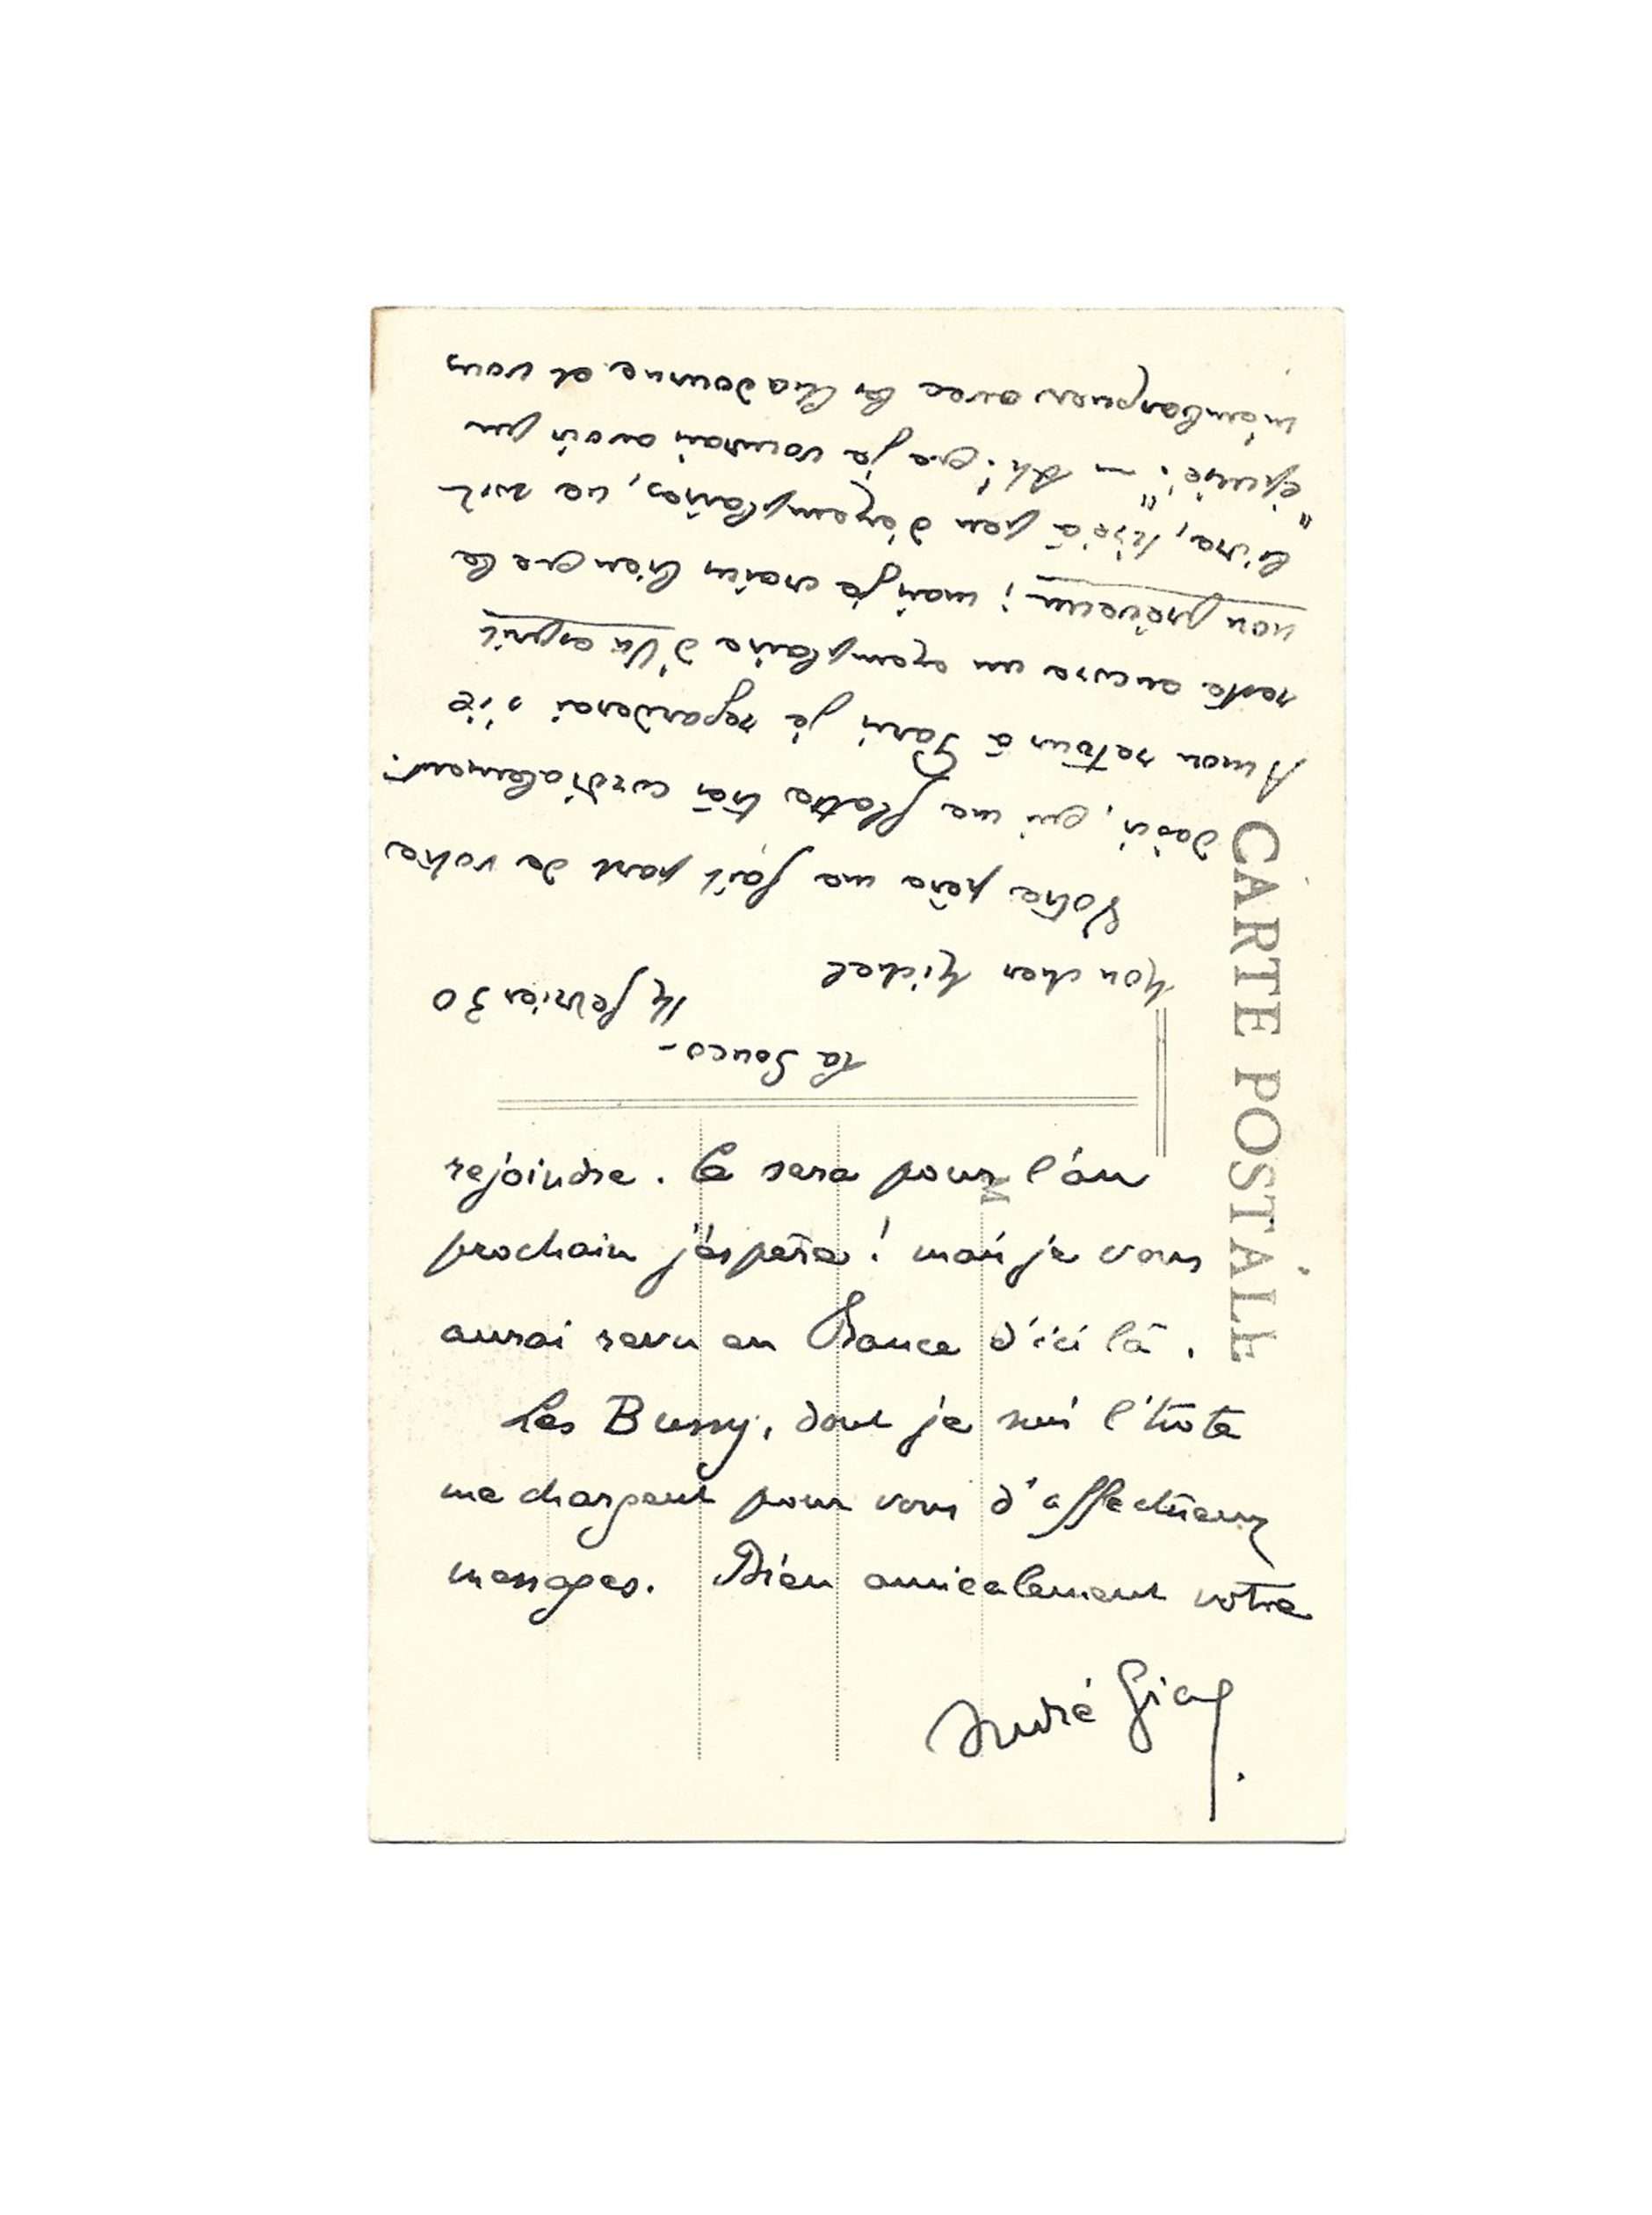 CARTE POSTALE
La Souco -
14 février 30
Mon cher Michel
Votre père me fait part de votre
désir, qui me flatte très cordialement.
A mon retour à Paris je regarderai s'il
reste encore un exemplaire d'Un esprit
non prévenu ; mais je crains bien que le
livre, tiré à peu d'exemplaires, ne soit
"épuisé". — Ah ! que je voudrais avoir pu
m'embarquer avec la et vous
rejoindre. Ce sera pour l'an
prochain j'espère ! mais je vous
aurai revu en France d'ici là.
Les Bussy, dont je suis l'hôte
me chargent pour vous d'affectueux
messages. Bien amicalement votre
André Gide.
M